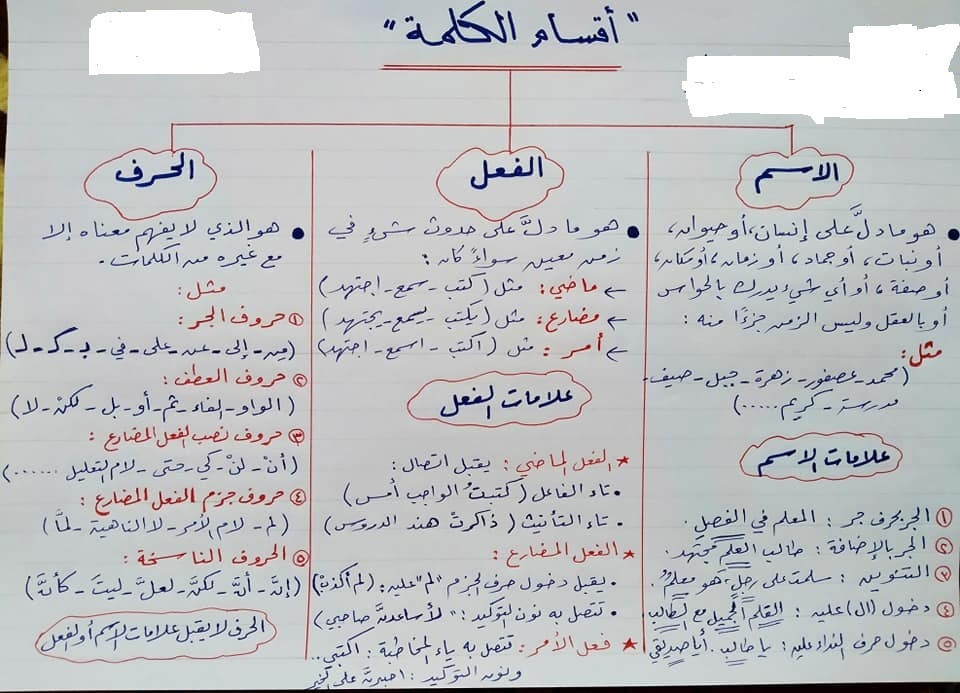 "أقسام الكلمة"
الاسم
هو ما دلَّ على إنسان، أو حيوان،
أو نبات، أو جماد، أو زمان، أو مكان،
أو صفة، أو أي شيء يدرك بالحواس
أو بالعقل وليس الزمن جزءًا منه :
مثل :
(محمد - عصفور - زهرة - جبل - صيف -
مدرسة - كريم .....)
علامات الاسم
① الجر بحرف جر : المعلم في الفصلِ.
② الجر بالإضافة : طالب العلمِ مجتهد.
③ التنوين : سلمت على رجلٍ - هو معلمٌ.
④ دخول (ال) عليه : القلم الجميل مع الطالب.
⑤ دخول حرف النداء عليه : يا طالب. أيا صديقي
الفعل
هو ما دلَّ على حدوث شيءٍ في
زمن معين سواءً كان :
← ماضي : مثل (كتب - سمع - اجتهد)
← مضارع : مثل (يكتب - يسمع - يجتهد)
← أمر : مثل (اكتب - اسمع - اجتهد)
علامات الفعل
★ الفعل الماضي : يقبل اتصال :
• تاء الفاعل (كتبتُ الواجب أمس)
• تاء التأنيث (ذاكرتْ هند الدروس)
★ الفعل المضارع :
• يقبل دخول حرف الجزم "لم" عليه : (لم أكذبْ)
• تتصل به نون التوكيد : " لأساعدنَّ صاحبي)
★ فعل الأمر : تتصل به ياء المخاطبة : اكتبي..
ونون التوكيد : اصبرنَّ على الخير
الحرف
هو الذي لا يفهم معناه إلا
مع غيره من الكلمات .
مثل :
① حروف الجر :
(مِن - إلى - عن - على - في - بـ - كـ - لـ)
② حروف العطف :
(الواو - الفاء - ثم - أو - بل - لكنْ - لا)
③ حروف نصب الفعل المضارع :
(أنْ - لنْ - كي - حتى - لام التعليل ......)
④ حروف جزم الفعل المضارع :
(لم - لام الأمر - لا الناهية - لمَّا)
⑤ الحروف الناسخة :
(إنَّ - أنَّ - لكنَّ - لعلَّ - ليتَ - كأنَّ)
الحرف لا يقبل علامات الاسم أو الفعل